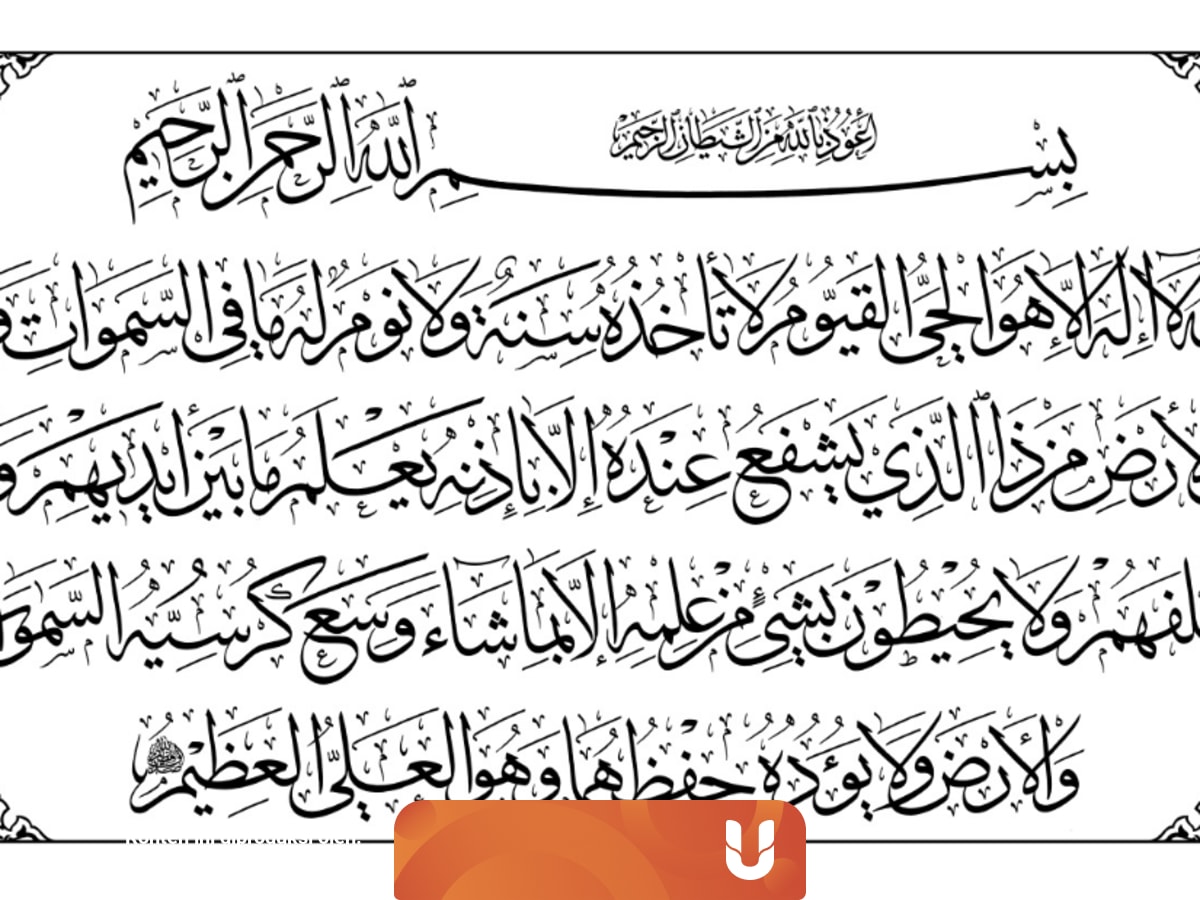 بِسْمِ اللهِ الرَّحْمٰنِ الرَّحِيمِ
اَعُوذُ بِاللهِ مِنَ الشَّيْطَانِ الرَّجِيمِ
لَا اِلٰهَ اِلَّا هُوَ الْحَيُّ الْقَيُّومُ لَا تَأْخُذُهُ سِنَةٌ وَلَا نَوْمٌ لَهُ مَا فِي السَّمٰوَاتِ
الْاَرْضِ مَنْ ذَا الَّذِي يَشْفَعُ عِنْدَهُ اِلَّا بِاِذْنِهِ يَعْلَمُ مَا بَيْنَ اَيْدِيهِمْ وَ
لْفَهُمْ وَلَا يُحِيطُونَ بِشَيْءٍ مِنْ عِلْمِهِ اِلَّا بِمَا شَاءَ وَسِعَ كُرْسِيُّهُ السَّمٰوَا
وَالْاَرْضَ وَلَا يَؤُدُهُ حِفْظُهُمَا وَهُوَ الْعَلِيُّ الْعَظِيمُ
Konten ini diproduksi oleh: